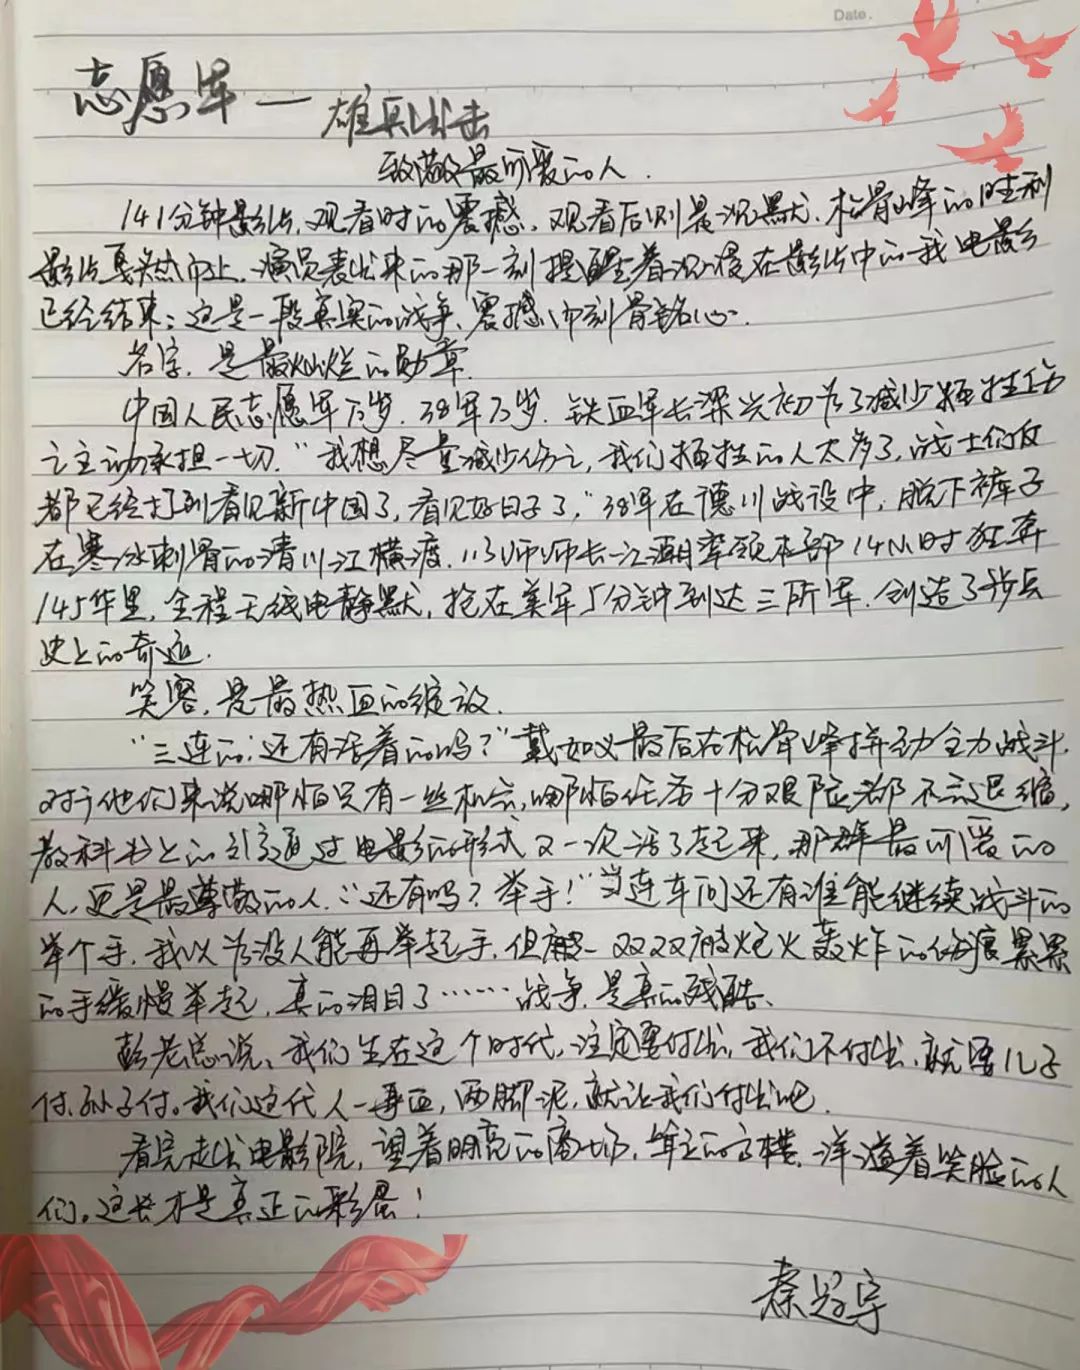 Date.
志愿军—雄兵出击
致敬最可爱的人.
141分钟影片,观看时的震撼,观看后则是沉默.松骨峰的胜利
影片戛然而止.演员表出来的那一刻提醒着沉浸在影片中的我电影
已经结束:这是一段真实的战争、震撼而刻骨铭心.
名字,是最灿烂的勋章.
中国人民志愿军万岁.38军万岁.铁血军长梁兴初为了减少牺牲伤
亡主动承担一切."我想尽量减少伤亡,我们牺牲的人太多了,战士们
都已经打到看见新中国了,看见好日子了,"38军在德川战役中,脱下裤子
在寒冰刺骨的清川江横渡.113师师长江潮率领本部14小时狂奔
145华里,全程无线电静默,抢在美军5分钟到达三所里.创造了步兵
史上的奇迹.
笑容,是最热血的绽放.
"三连的:还有活着的吗?"戴如义最后在松骨峰拼动全力战斗.
对于他们来说哪怕只有一丝机会,哪怕任务十分艰险都不言退缩,
教科书上的通过电影的形式又一次活了起来,那群最可爱的
人,更是最尊敬的人."还有吗?举手!"当连车问还有谁能继续战斗的
举个手,我以为没人能再举起手,但一双双被炮火轰炸的伤痕累累
的手缓慢举起,真的泪目了……战争,是真的残酷、
彭老总说、我们生在这个时代,注定要付出,我们不付出,就要儿子
付,孙子付。我们这代人一身血,两脚泥,就让我们付出吧.
看完走出电影院,望着明亮的商场,耸立的高楼,洋溢着笑脸的人
们。这些才是真正的彩蛋!
秦冠宇